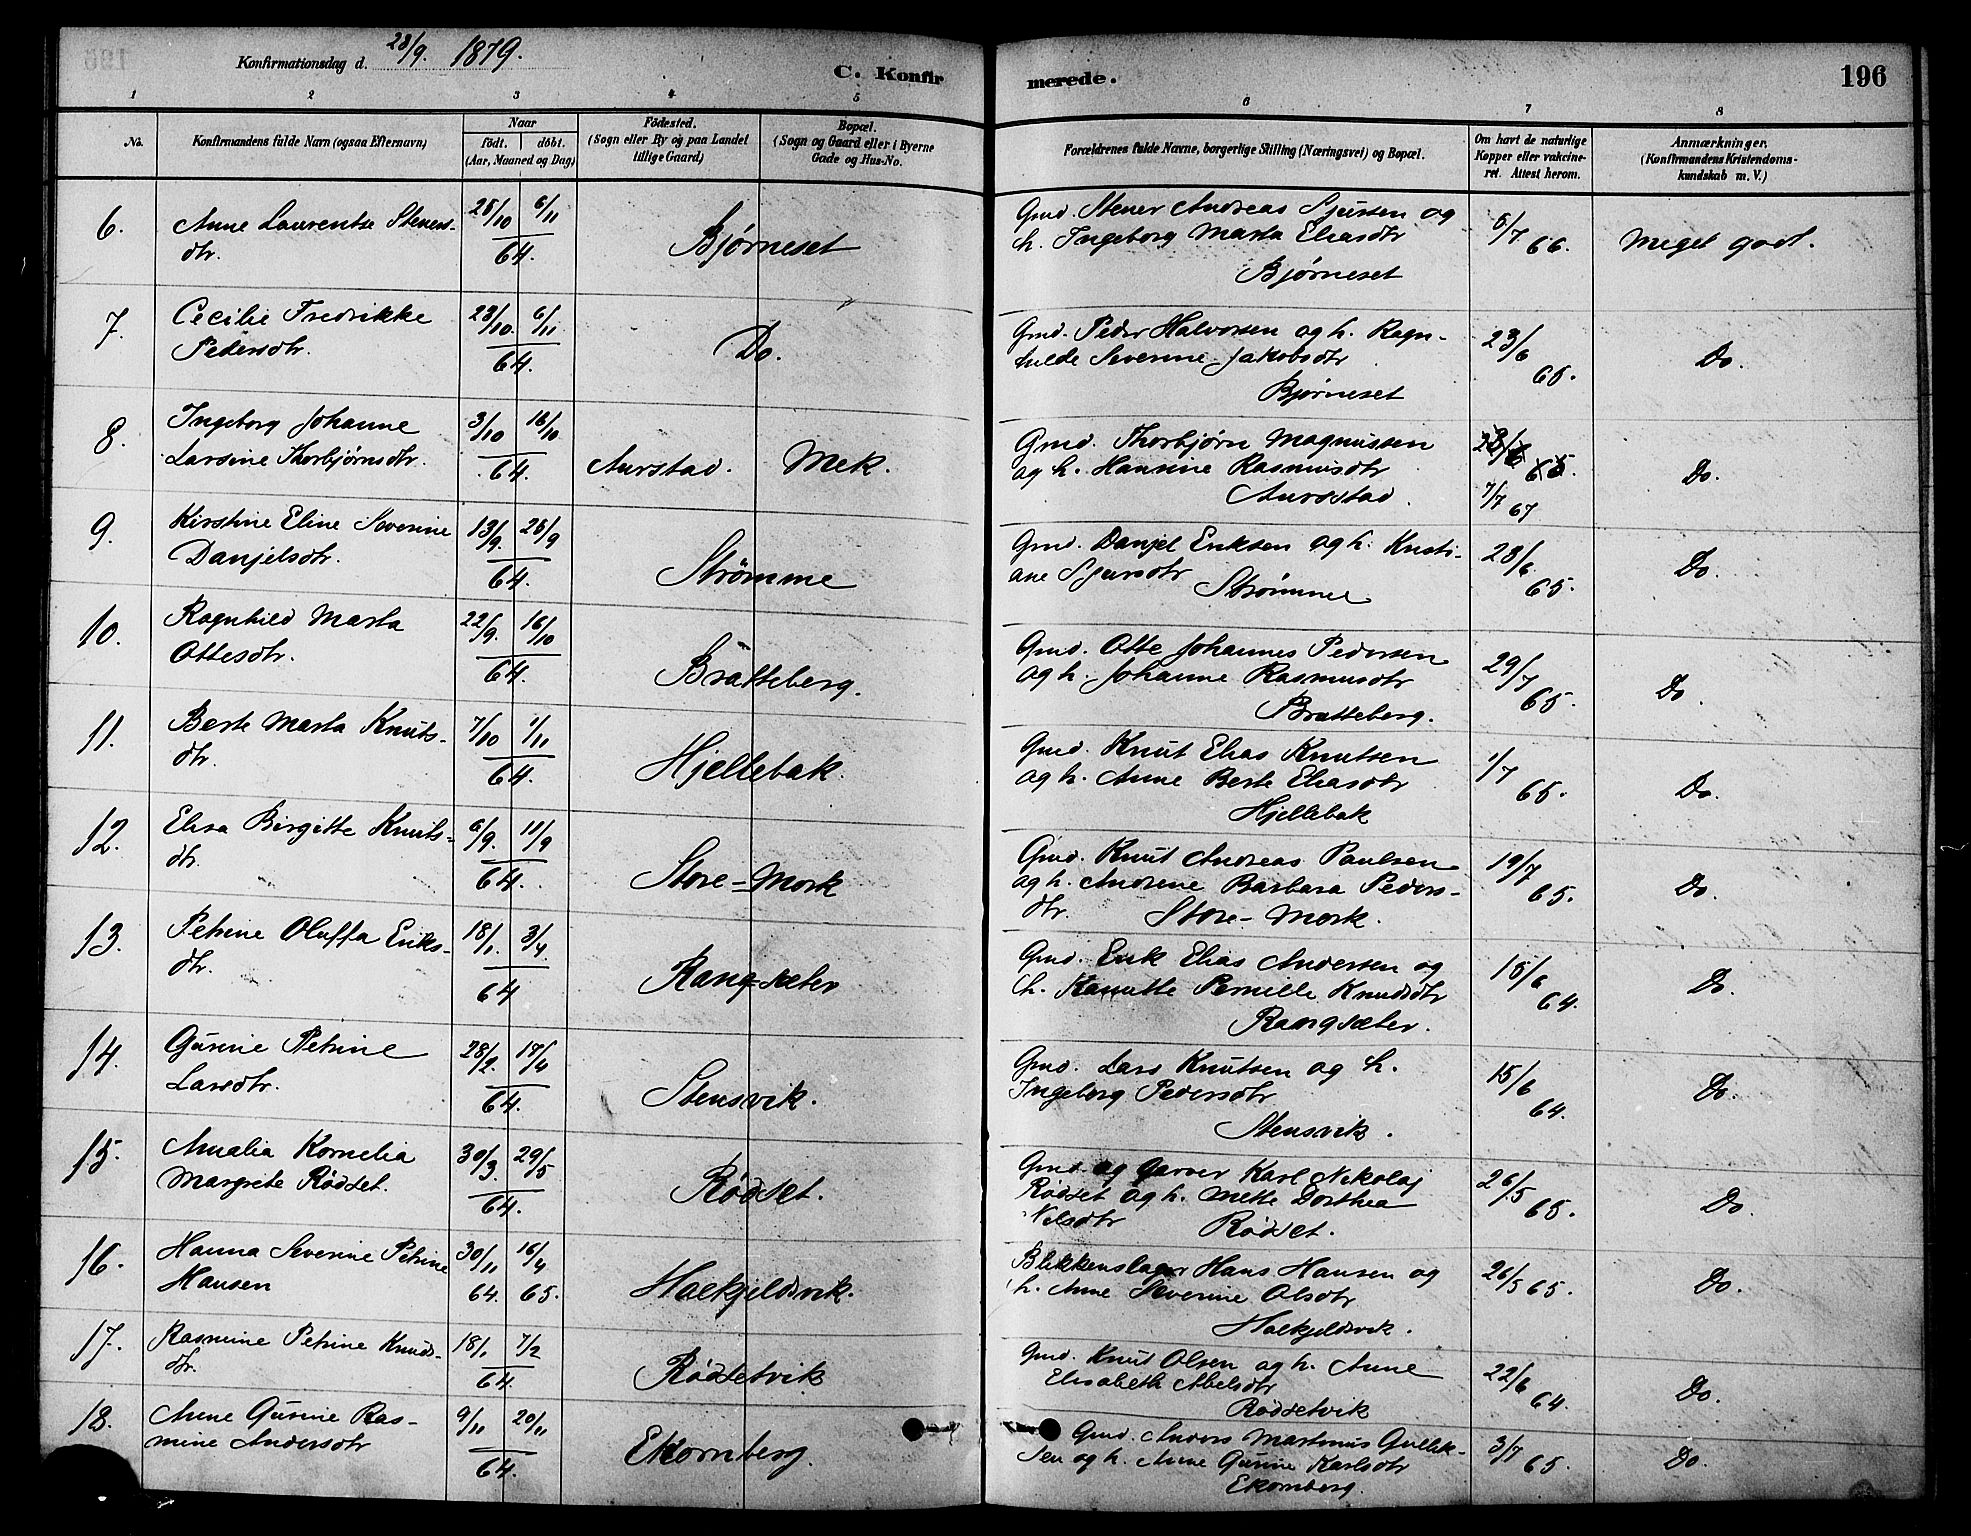 Konfirmationsdag d. 28/9. 1879.
C. Konfirmerede.
196
1 2 3 4 5 6 7 8
No.
Konfirmandens fulde Navn (ogsaa Efternavn)
Naar
födt. döbt.
(Aar, Maaned og Dag)
Födested.
(Sogn eller By og paa Landet
tillige Gaard)
Bopæl.
(Sogn og Gaard eller i Byerne
Gade og Hus-No.
Forældrenes fulde Navne, borgerlige Stilling (Næringsvei) og Bopæl.
Om havt de naturlige
Kopper eller vakcine-
ret. Attest herom.
Anmærkninger.
(Konfirmandens Kristendoms-
kundskab m. V.)
6. Anne Laurentse Stenens- /10 6/11 Gmd. Stener Andreas Sjursen og 6/7 66. Meget godt.
dtr. 64. Bjørneset h. Ingeborg Marta Eliasdtr
Bjørneset
7. Cecilie Fredrikke 23/10. 6/11 Gmd. Peder Halvorsen og h. Ragn- 23/6 65. Do.
Pedersdtr. 64. Do. hilde Severine Jakobsdtr
Bjørneset
8. Ingeborg Johanne 3/10 16/10 Gmd. Thorbjørn Magnussen 65. Do.
Larsine Thorbjørnsdtr. 64. Aurstad. Mek. og h. Hansine Rasmusdtr
Aurstad. 7/7 67
9. Kirstine Eline Severine 13/9. 25/9 Gmd. Danjel Eriksen og h. Kristi- 28/6. 65. Do.
Danjelsdtr. 64. Strømme ane Sjursdtr Strømme
10. Ragnhild Marta 22/9. 16/10 Gmd. Otte Johannes Pedersen 29/7 65. Do.
Ottesdtr. 64. Bratteberg. og h. Johanne Rasmusdtr
Bratteberg.
11. Berte Marta Knuts- 7/10 1/11 Gmd. Knut Elias Knutsen 1/7 65. Do.
dtr. 64. Hjellebak. og h. Anne Berte Eliasdtr
Hjellebak
12. Elisa Birgitte Knuts- 6/9. 11/9 Gmd. Knut Andreas Paulsen 19/7 65. Do.
dtr. 64. Store-Mork og h. Andrine Barbara Peders-
dtr. Store-Mork.
13. Petrine Oluffa Eriks- 18/1. 3/4. Gmd. Erik Elias Andersen og 15/6 64. Do.
dtr. 64 Rangsæter h. Kanutte Pernille Knudsdtr
Rangsæter.
14. Gurine Petrine 28/2. 17/4 Gmd. Lars Knutsen og h. 15/6 64. Do.
Larsdtr. 64. Stensvik. Ingeborg Pedersdtr
Stensvik.
15. Amalia Kornelia 30/3. 29/5 Gmd. og Garver Karl Nikolaj 26/5 65. Do.
Margrete Rødset. 64. Rødset. Rødset og h. Mette Dorthea
Nilsdtr Rødset.
16. Hanna Severine Petrine 30/11 16/4 Blikkenslager Hans Hansen og 26/5 65. Do.
Hansen 64. 65. Holkjeldsvik. h. Anne Severine Olsdtr
Holkjeldsvik.
17. Rasmine Petrine Knuds- 18/1 7/2 Gmd. Knut Olsen og h. Anne 22/6 64. Do.
dtr. 64. Rødsetvik Elisabeth Abelsdtr
Rødsetvik
18. Anne Gurine Ras- 9/11 20/11 Gmd. Anders Martinus Gullik- 3/7 65. Do.
mine Andersdtr 64. Ekornberg. sen og h. Anne Gurine Karlsdtr
Ekornberg.